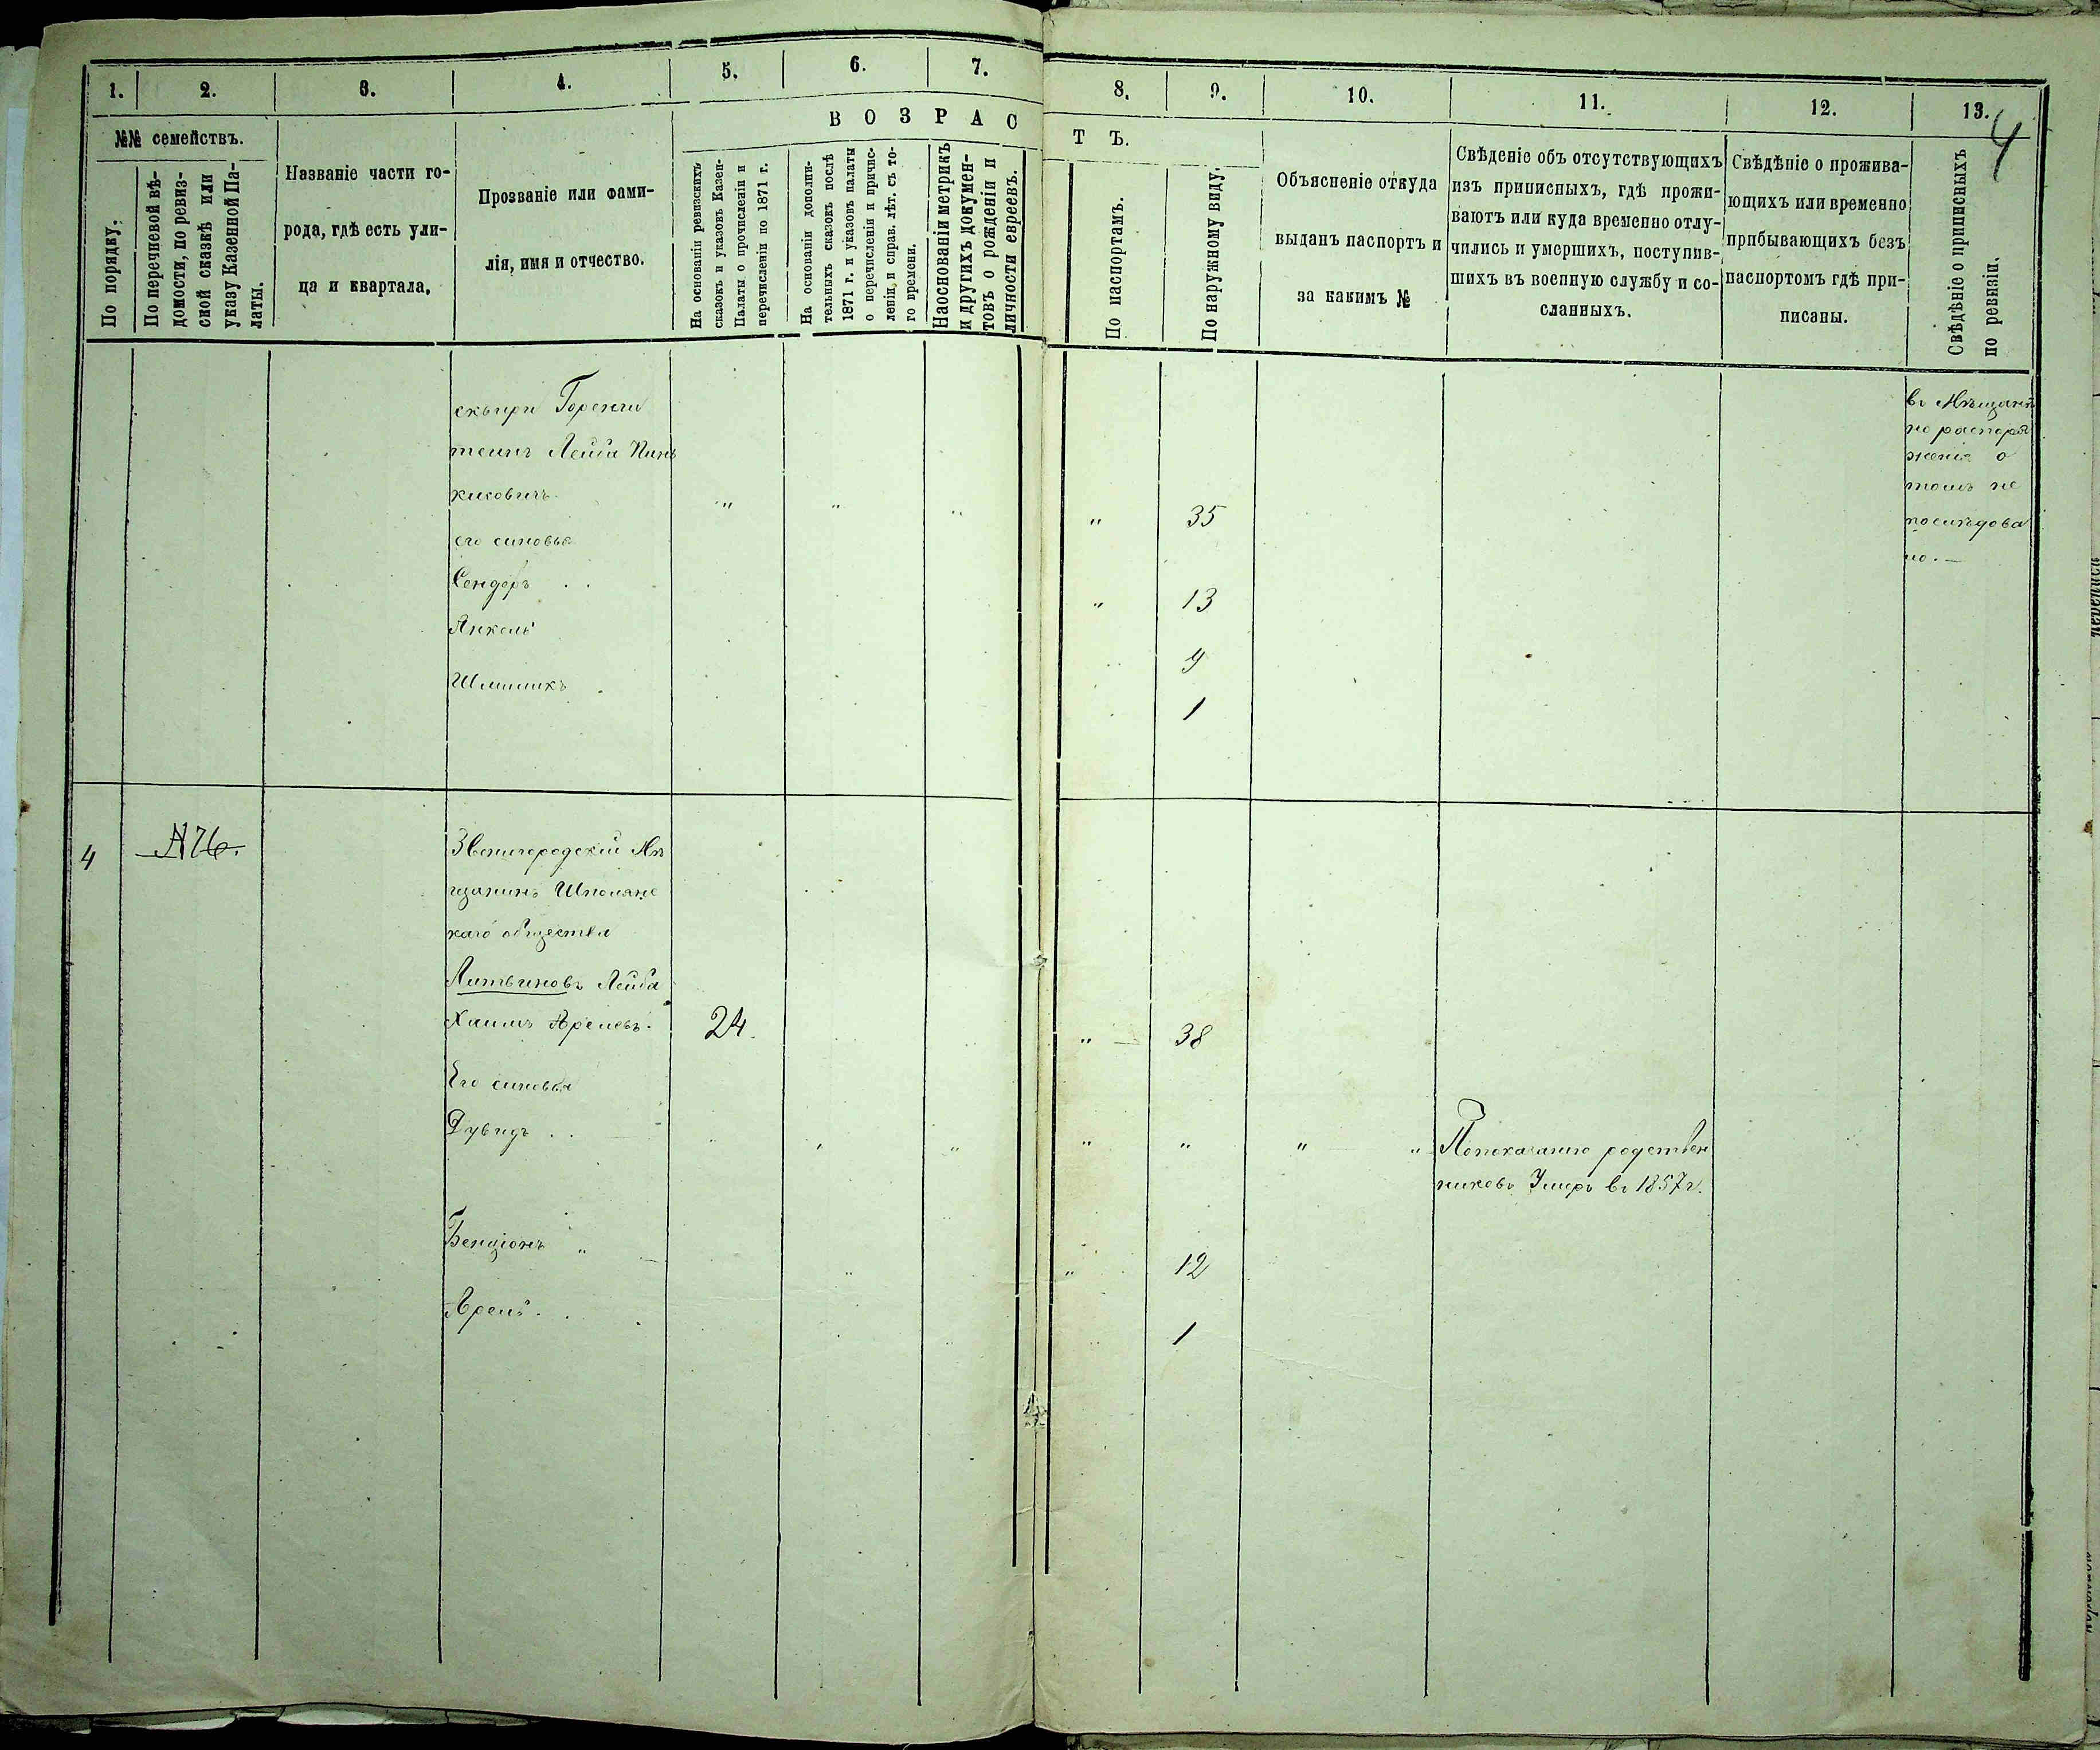 1. 2. 3. 4. 5. 6. 7. 8. 9. 10. 11. 12. 13.
4
В О З Р А С Т Ъ.
№№ семействъ.
По порядку.
По перечневой вѣ-
домости, по ревиз-
ской сказкѣ или
указу Казенной Па-
латы.
Названіе части го-
рода, гдѣ есть ули-
ца и квартала.
Прозваніе или фами-
лія, имя и отчество.
На основаніи ревизскихъ
сказокъ и указовъ Казен-
Палаты о прочисленіи и
перечисленіи по 1871 г.
На основаніи дополни-
тельныхъ сказокъ послѣ
1871 г. и указовъ палаты
о перечисленіи и причис-
леніи, и справ. лѣт. съ то-
го времени.
На основаніи метрикъ
и другихъ докумен-
товъ о рожденіи и
личности евреевъ.
По паспортамъ.
По наружному виду.
Объясненіе откуда
выданъ паспортъ и
за какимъ №
Свѣденіе объ отсутствующихъ
изъ приписныхъ, гдѣ прожи-
ваютъ или куда временно отлу-
чились и умершихъ, поступив-
шихъ въ военную службу и со-
сланныхъ.
Свѣдѣніе о прожива-
ющихъ или временно
прибывающихъ безъ
паспортомъ гдѣ при-
писаны.
Свѣдѣніе о приписныхъ
по ревизіи.
Лейба
его синовья
Сендеръ
Янкель
Шлиомъ
35
13
9
1
въ Мѣщанѣ
но распоря
женія о
томъ не
послѣдова
ло. —
4
№ 76.
Звенигородскій Мѣ
щанинъ Шполянс
каго общества
Литвиновъ Лейба
Хаимъ Арелевъ.
24.
" 38
Его синовья
Дувидъ . .
" " " "
Попоказанію родствен
никовъ Умеръ въ 1857 г.
Бенціонъ "
12
Арель.
1